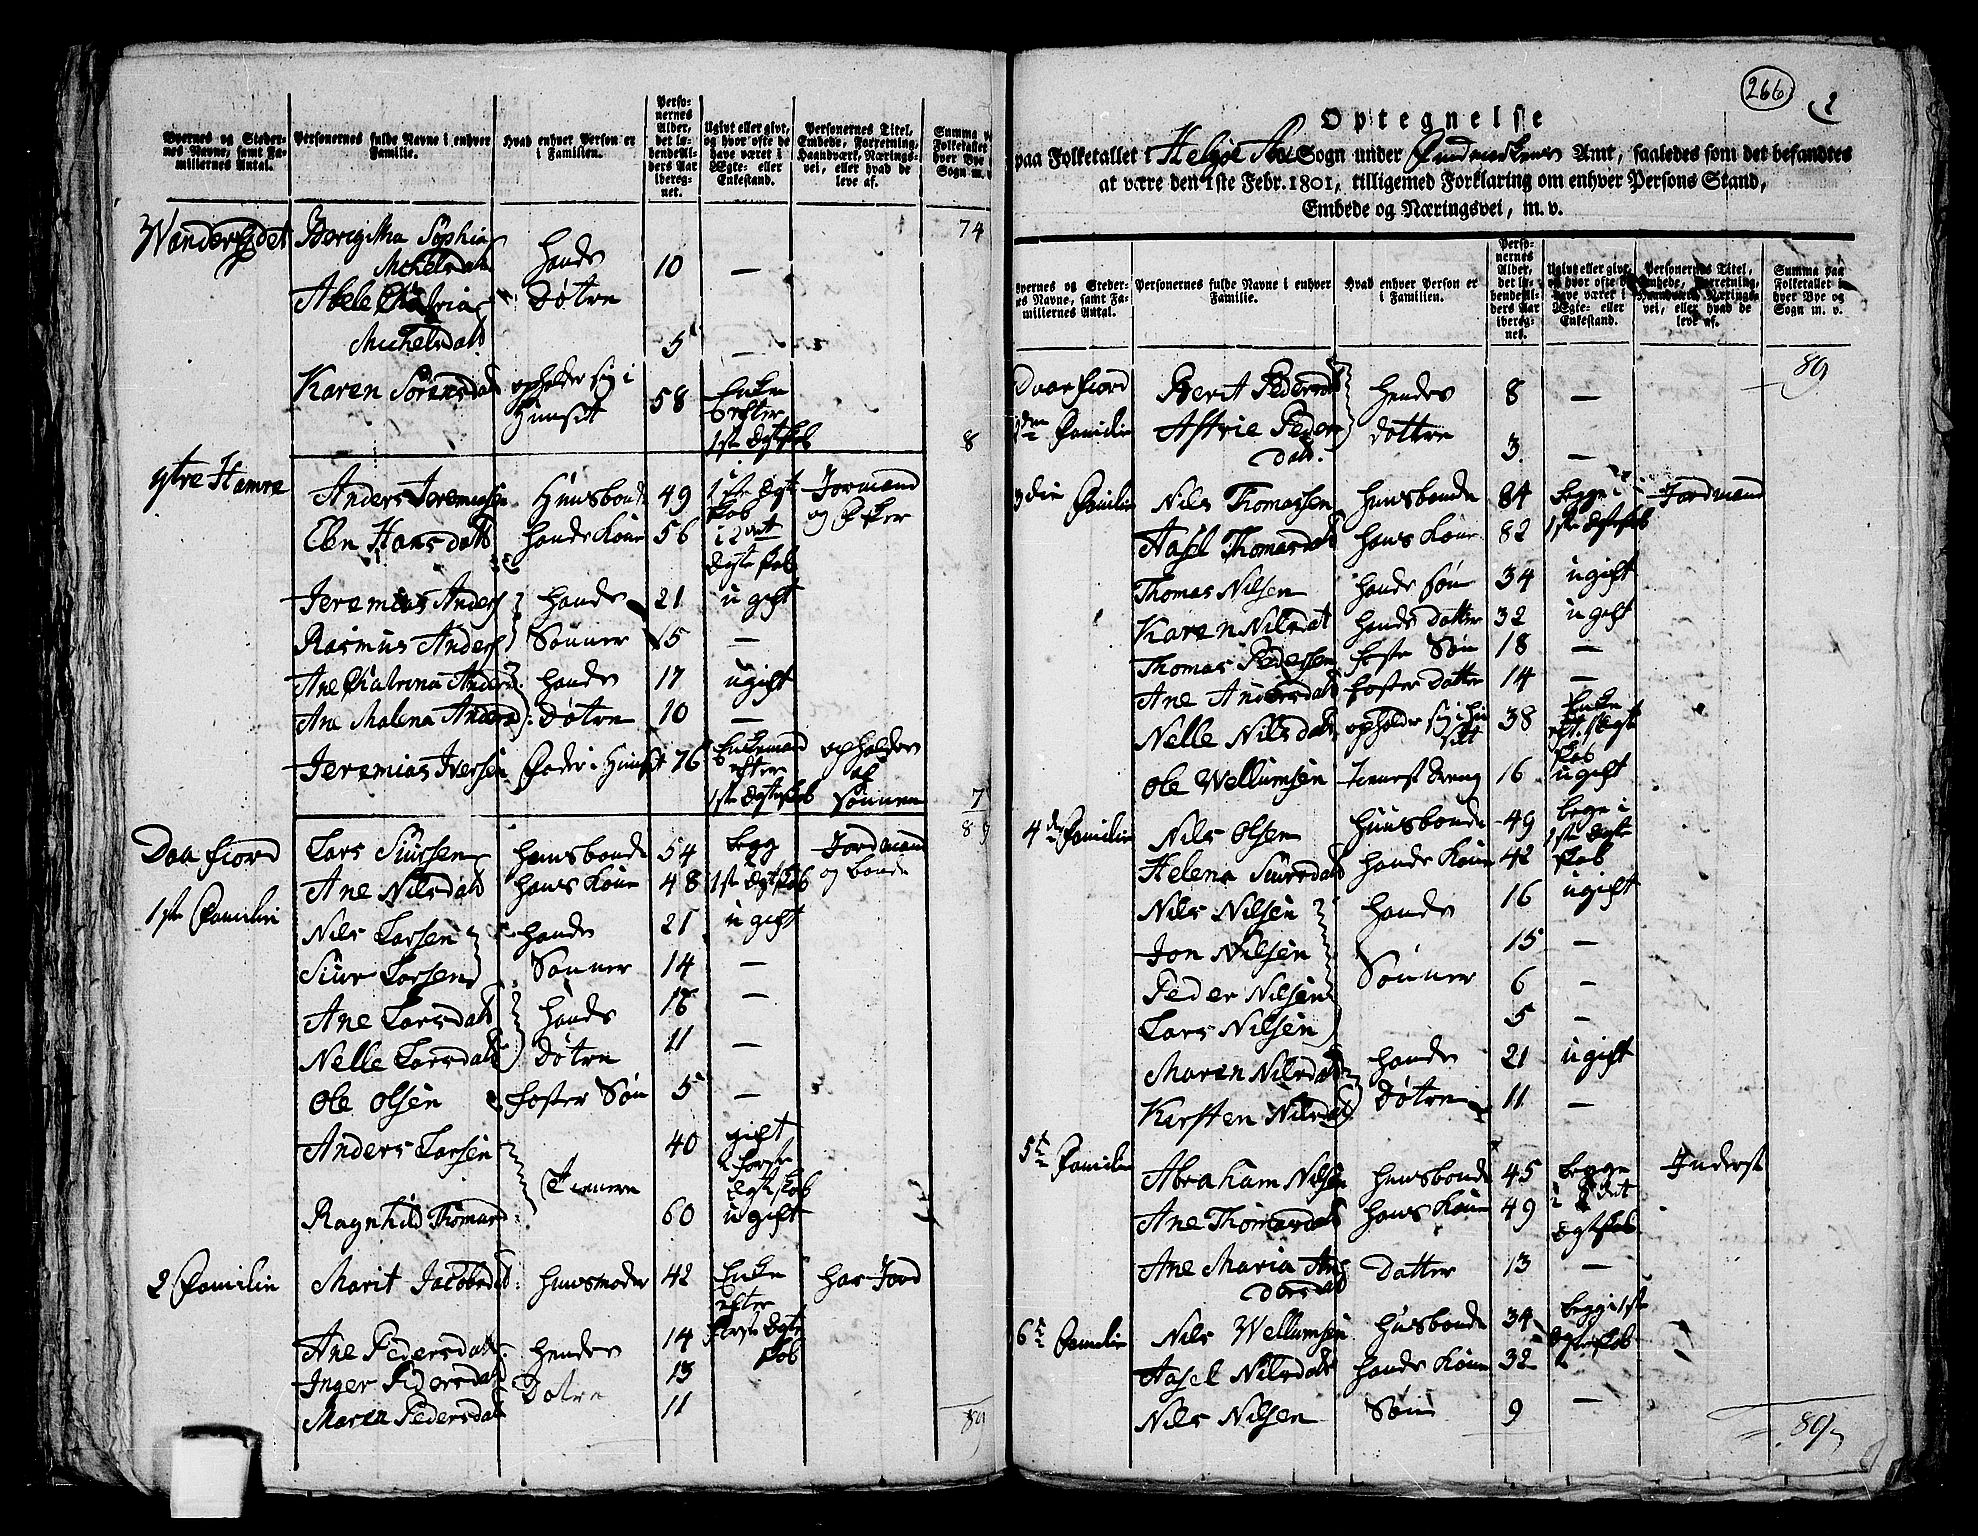 Byernes og Steder-
nes Navne, samt Fa-
miliernes Antal.
Personernes fulde Navne i enhver
Familie.
Hvad enhver Person er
i Familien.
Perso-
nernes
Alder,
det lø-
bende Al-
ders Aar
iberegnet.
Ugivt eller givt,
og hvor ofte de
have været i
Ægte- eller
Enkestand.
Personernes Titel,
Embede, Forretning,
Haandværk, Nærings-
vei, eller hvad de
leve af.
Summa
Folketallet
hver Bye
Sogn m.
74
Sophia
Michelsdatt Hands 10 —
Abele Catrina Døtre
Michelsdatt 5 —
Karen Sørensdatt opholder sig i Huuset 58 Enke
efter
1ste Ægteskab 8
ytre Hamre Anders Jeremiasen Huusbonde 49 i 1ste Ægte Jormand
skab og
Eben Hansdatt Hands Kone 56 i 2det
Ægteskab
Jeremias Anders Hands 21 ugift
Rasmus Anders Sønner 15 —
Ane Catrina Anders Hands 17 ugift
Ane Malena Anders Døtre 10 —
Jeremias Iversen Fader i Huuset 76 Enkemand opholdes
efter af
1ste Ægteskab Sønnen 7
89
Daafiord Lars Siursen Huusbonde 54 Begge Jordmand
Ane Nilsdatt Hans Kone 48 1ste Ægteskab og bonde
1ste Familie
Nils Larsen Hands 21 ugift
Siur Larsen Sønner 14 —
Ane Larsdatt Hands 16 —
Nelle Larsdatt Døtre 11 —
Ole Olsen Foster Søn 5 —
Anders Larsen 40 gift
i første
Tienere Ægteskab
Ragnhild Thomasd 60 ugift
2 Familie Marit Jacobsdt Huusmoder 42 Enke har Jord
efter
Ane Pedersdatt Hendes 14 første Ægte
skab
Inger Pedersdatt Døtre 13
Maren Pedersdatt 11
89
266
2
Optegnelse
paa Folketallet i Helgøe Sogn under Amt, saaledes som det befandtes
at være den 1ste Febr. 1801, tilligemed Forklaring om enhver Persons Stand,
Embede og Næringsvei, m. v.
Byernes og Steder-
nes Navne, samt Fa-
miliernes Antal.
Personernes fulde Navne i enhver
Familie.
Hvad enhver Person er
i Familien.
Perso-
nernes
Alder,
det lø-
bende Al-
ders Aar
ibereg-
net.
Ugivt eller givt,
og hvor ofte de
have været i
Ægte- eller
Enkestand.
Personernes Titel,
Embede, Forretning,
Haandværk, Nærings-
vei, eller hvad de
leve af.
Summa paa
Folketallet i
hver Bye og
Sogn m. v.
89
Daafiord Berit Pedersdt Hendes 8 —
2den Familie Astrie Peders Døttre
Datt. 3 —
3die Familie Nils Thomassen Huusbonde 84 Begge i Jordmand
Aasel Thomasdatt Hans Kone 82 1ste Ægteskab
Thomas Nilsen Hands Søn 34 ugift
Karen Nilsdat Hands Datter 32 ugift
Thomas Pedersen Foster Søn 18 —
Ane Andersdatt Foster Datter 14 —
Nelle Nilsdatt opholder sig i Huuset 38 Enke
eft. 1 Ægte
skab
Ole Wellumsen Tieneste Dreng 16 ugift
4de Familie Nils Olsen Huusbonde 49 Begge i
1ste Ægte
Helena Siursdatt Hands Kone 42 skab
Nils Nilsen Hands 16 ugift
Jon Nilsen 15 —
Peder Nilsen Sønner 6 —
Lars Nilsen 5 —
Maren Nilsdatt Hands 21 ugift
Kirsten Nilsdatt Døtre 11 —
5te Familie Abraham Nilsen Huusbonde 45 Begge Inderst
Ane Thomasdatt Hans Kone 49 i 2det
Ægteskab
Ane Maria An- Datter 13 —
dersdat
6te Familie Nils Wellumsen Huusbonde 34 Begge i 1ste
Aasel Nilsdatt Hands Kone 32 Ægteskab
Nils Nilsen Søn 9 —
89